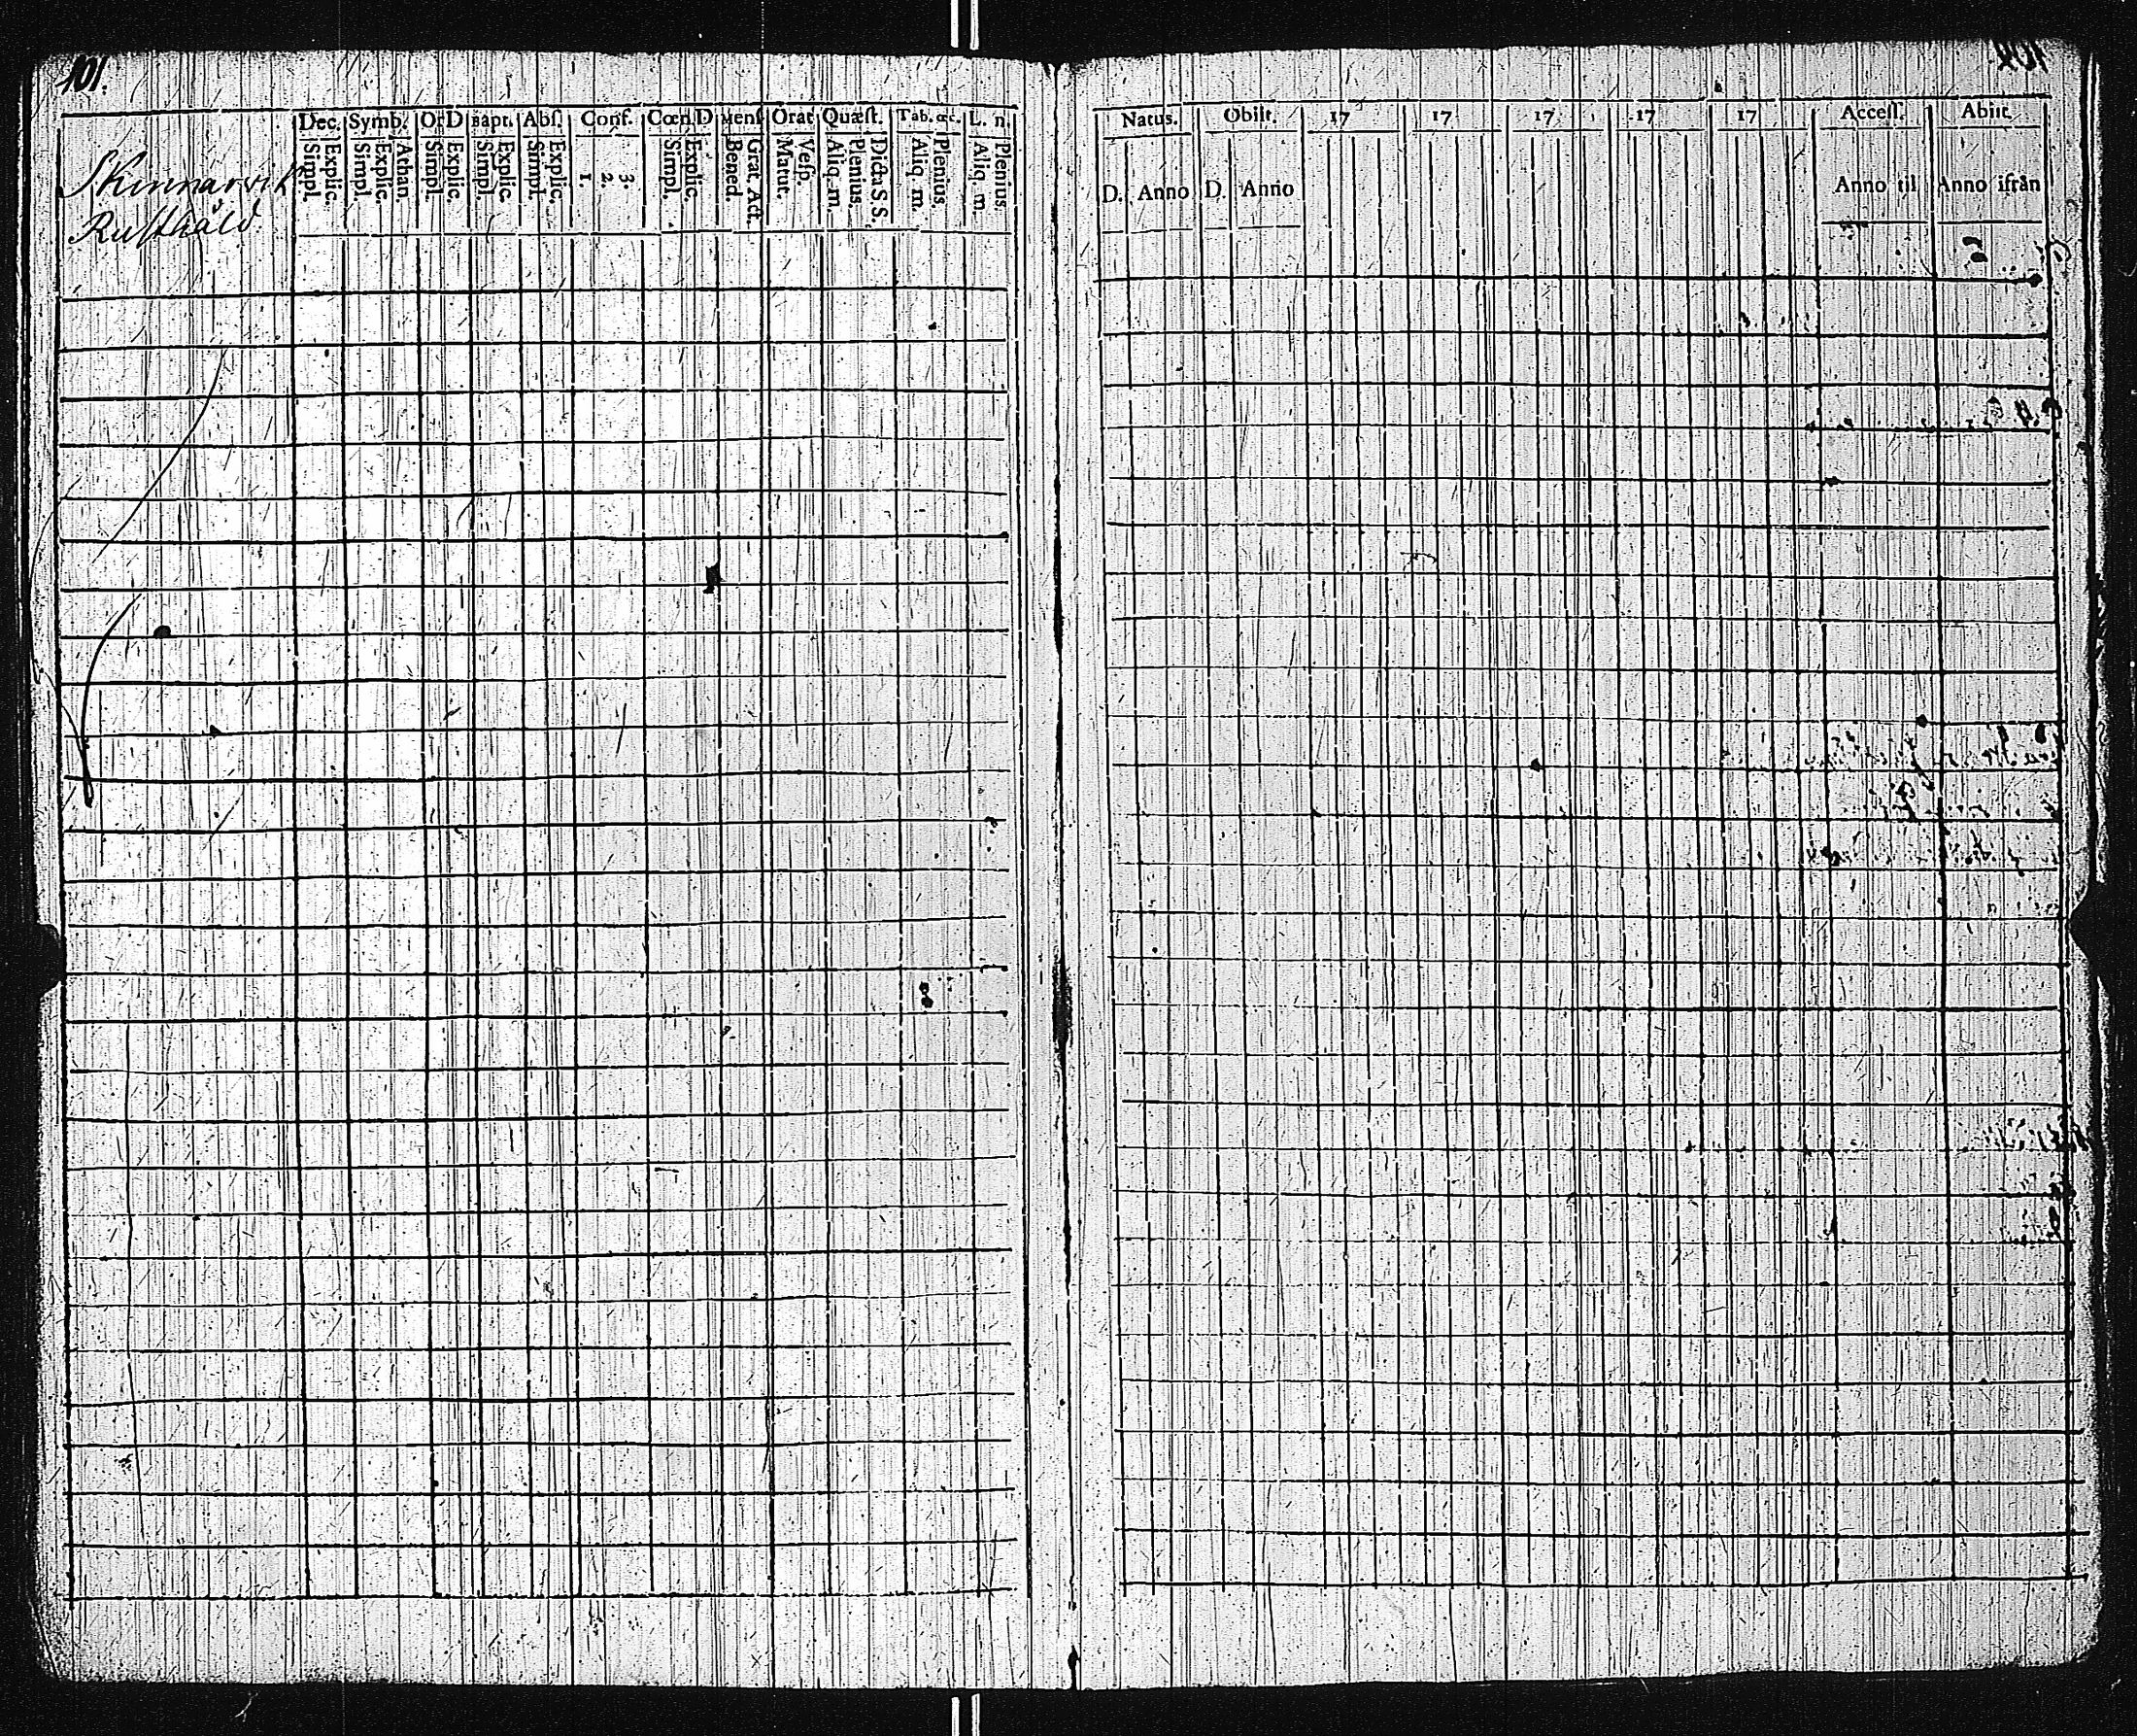 101.
Skinnarvik
Rusthåld
Dec. Symb. Or D Bapt. Abſ. Conf. Cœn. D Menſ Orat Quæſt. Tab. œc. L. n.
Simpl. Explic. Simpl. Explic. Athan. Simpl. Explic. Simpl. Explic. Simpl. Explic. 1. 2. 3. Simpl. Explic. Bened. Grat. Act. Matut. Veſp. Aliq. m. Plenius. Dicta S. S. Aliq. m. Plenius. Aliq. m. Plenius.
Natus. Obiit. 17 17 17 17 17 Acceſſ. Abiit.
D. Anno D. Anno Anno til Anno ifrån